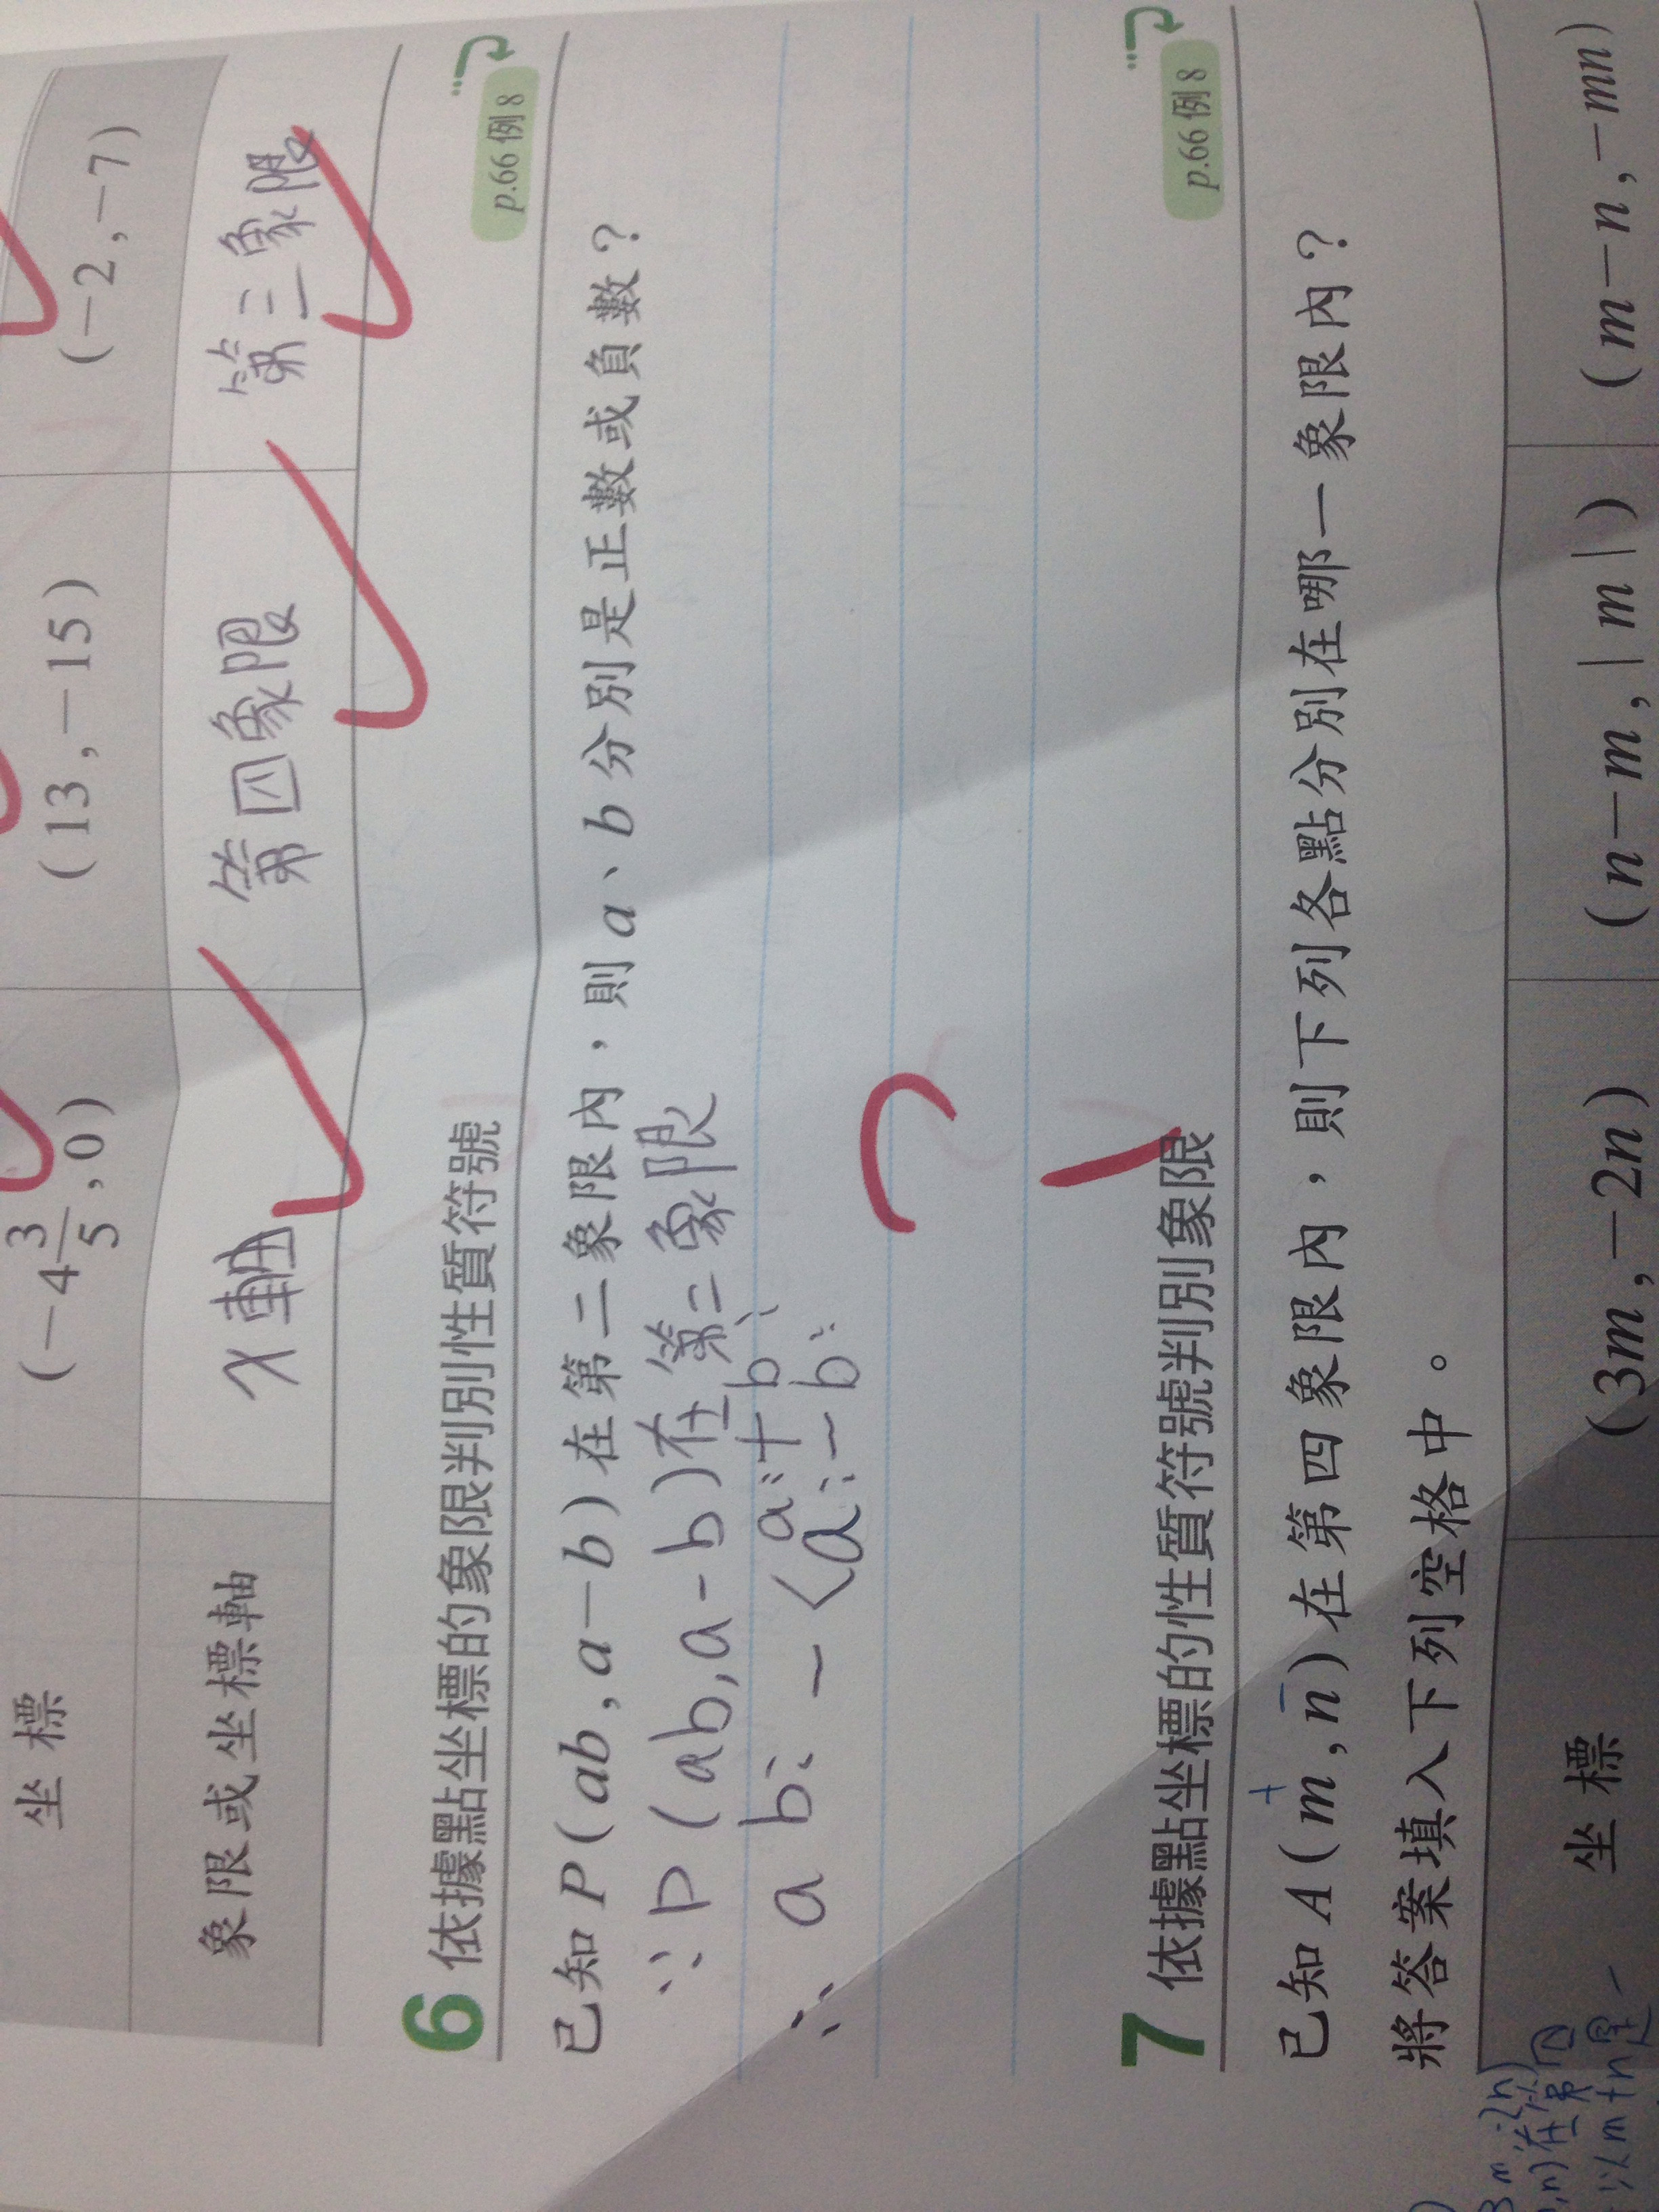 坐標 (-4 3/5 , 0) (13 , -15) (-2 , -7)
象限或坐標軸 x軸 第四象限 第三象限
6 依據點坐標的象限判別性質符號 p.66 例 8
已知 P ( ab , a-b ) 在第二象限內，則 a、b 分別是正數或負數？
∵ P (ab, a-b) 在第二象限
∴ a b: - < a:+ b:
a:- b:
7 依據點坐標的性質符號判別象限 p.66 例 8
已知 A ( m , n ) 在第四象限內，則下列各點分別在哪一象限內？
+ -
將答案填入下列空格中。
坐標 ( 3m , -2n ) ( n-m , | m | ) ( m-n , -mn )